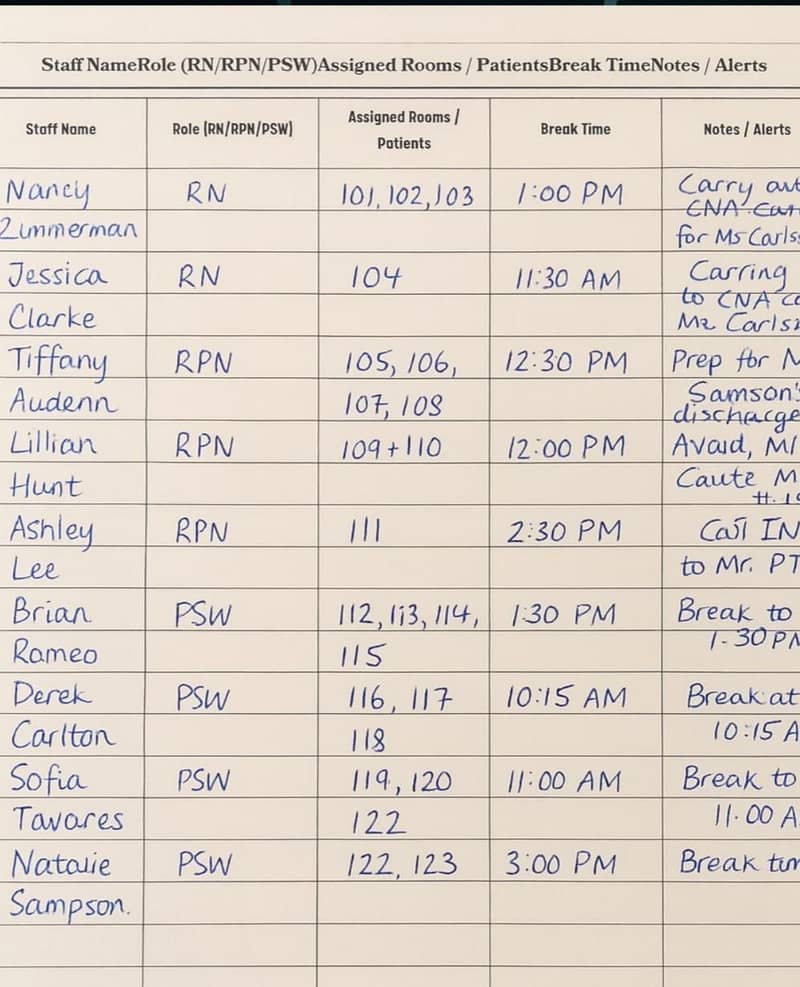 Staff NameRole (RN/RPN/PSW)Assigned Rooms / PatientsBreak TimeNotes / Alerts
Staff Name Role (RN/RPN/PSW) Assigned Rooms / Patients Break Time Notes / Alerts
Nancy RN 101, 102, 103 1:00 PM Carry
Zimmerman CNA
for Ms
Jessica RN 104 11:30 AM Carring
Clarke to CNA
Tiffany RPN 105, 106, 12:30 PM Prep for
Audenn 107, 108 Samson's
discharge
Lillian RPN 109+110 12:00 PM
Hunt
Ashley RPN 111 2:30 PM
Lee to Mr. PT
Brian PSW 112, 113, 114, 1:30 PM Break to
Rameo 115 1-30
Derek PSW 116, 117 10:15 AM Break at
Carlton 118 10:15 A
Sofia PSW 119, 120 11:00 AM Break to
Tavares 122 11.00 A
Natalie PSW 122, 123 3:00 PM Break
Sampson.